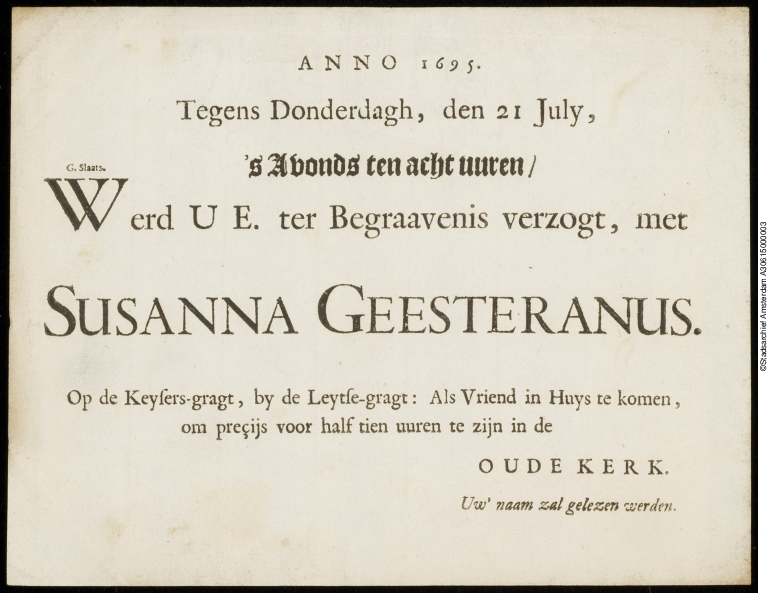 ANNO 1695.
Tegens Donderdagh, den 21 July,
's Avonds ten acht uuren /
G. Slaats.
Werd U E. ter Begraavenis verzogt, met
SUSANNA GEESTERANUS.
Op de Keyſers-gragt, by de Leytſe-gragt: Als Vriend in Huys te komen,
om preçijs voor half tien uuren te zijn in de
OUDE KERK.
Uw' naam zal gelezen werden.
©Stadsarchief Amsterdam A30615000003